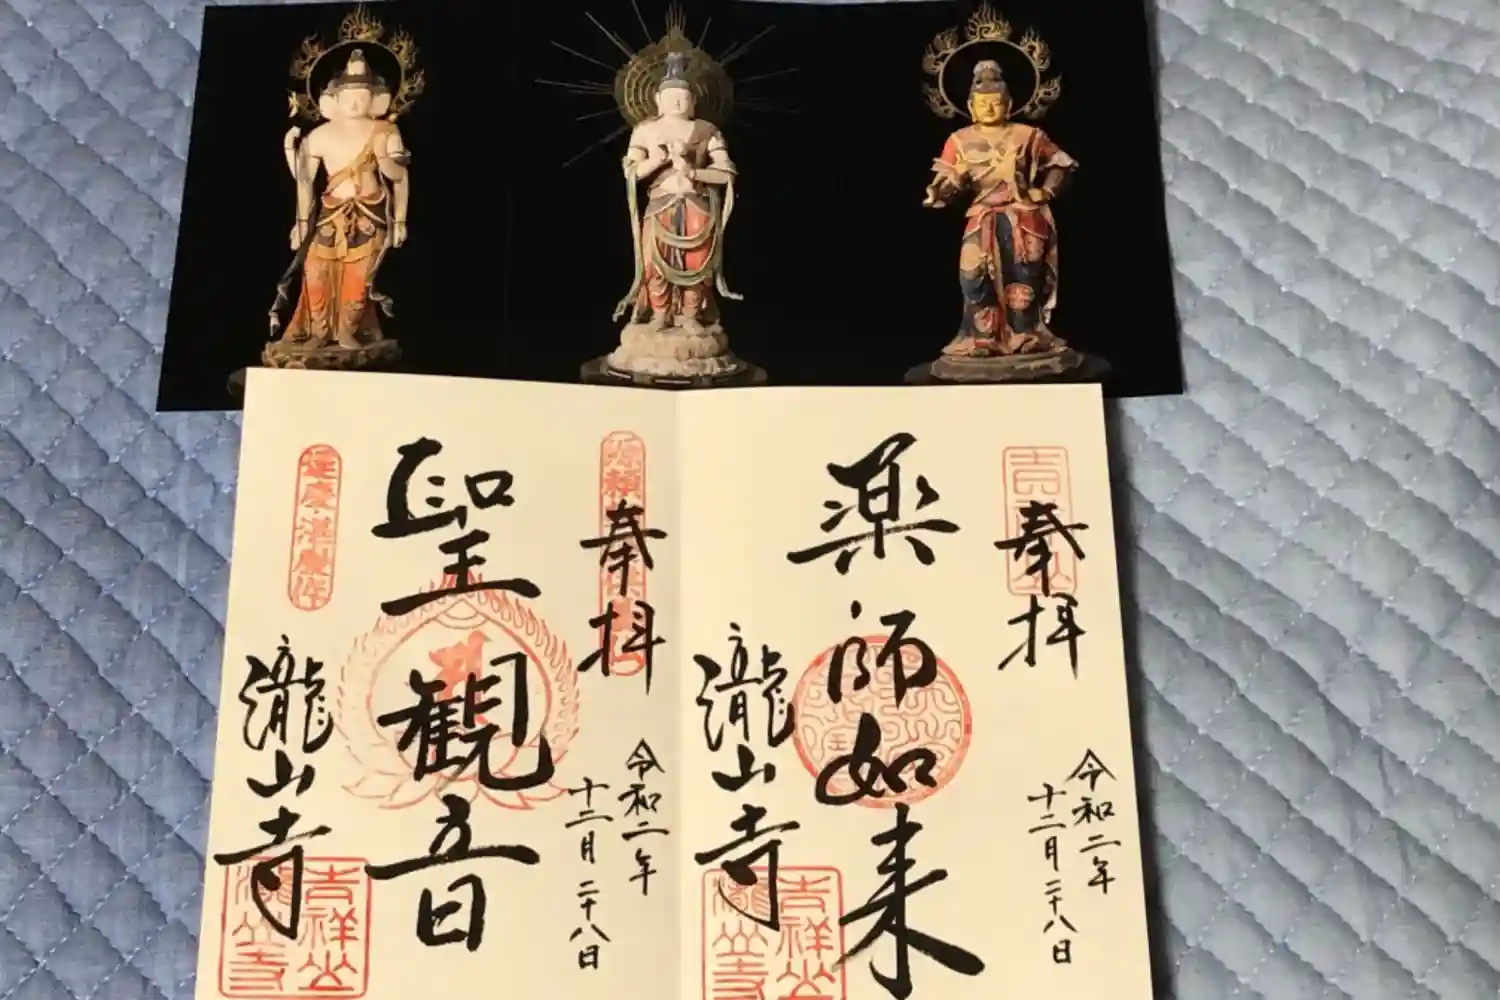 奉拝
令和二年
十二月二十八日
薬師如来
瀧山寺
吉祥山
瀧山寺
奉拝
令和二年
十二月二十八日
聖観音
運慶・湛慶作
瀧山寺
吉祥山
瀧山寺